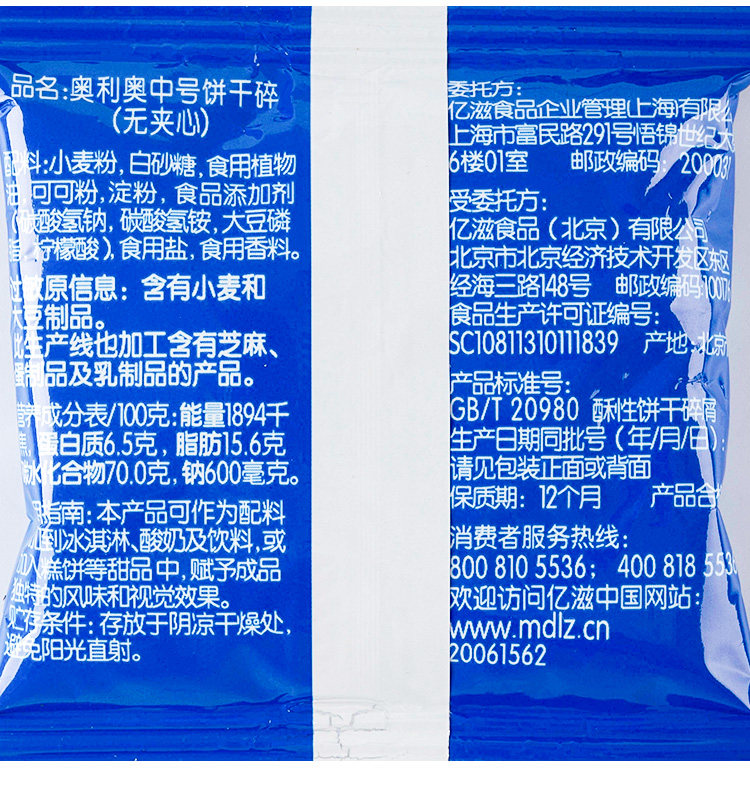 品名:奥利奥中号饼干碎
(无夹心)
配料:小麦粉，白砂糖，食用植物
油，可可粉，淀粉，食品添加剂
(碳酸氢钠，碳酸氢铵，大豆磷
脂，柠檬酸)，食用盐，食用香料。
过敏原信息：含有小麦和
大豆制品。
此生产线也加工含有芝麻、
蛋制品及乳制品的产品。
营养成分表/100克:能量1894千
焦，蛋白质6.5克，脂肪15.6克
水化合物70.0克，钠600毫克。
指南：本产品可作为配料
到冰淇淋、酸奶及饮料，或
入糕饼等甜品中，赋予成品
独特的风味和视觉效果。
贮存条件：存放于阴凉干燥处，
避免阳光直射。
委托方：
亿滋食品企业管理(上海)有限公
上海市富民路291号悟锦世纪大
6楼01室 邮政编码：200031
受委托方：
亿滋食品（北京）有限公司
北京市北京经济技术开发区东区
经海三路148号 邮政编码:100176
食品生产许可证编号：
SC10811310111839 产地:北京
产品标准号：
GB/T 20980 酥性饼干碎屑
生产日期同批号（年/月/日）：
请见包装正面或背面
保质期：12个月 产品合
消费者服务热线：
800 810 5536； 400 818 553
欢迎访问亿滋中国网站：
www.mdlz.cn
20061562